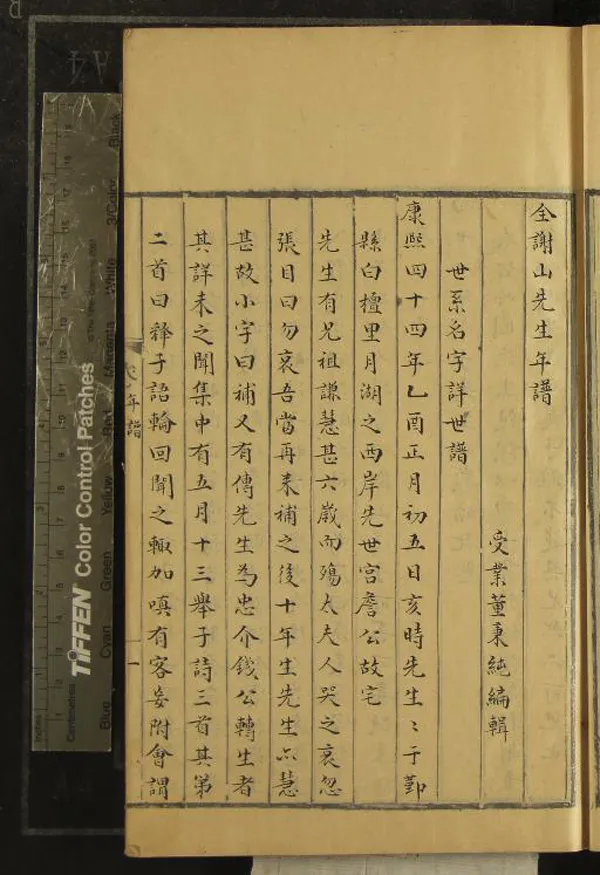 全謝山先生年譜
受業董秉純編輯
世系名字詳世譜
康熙四十四年乙酉正月初五日亥時先生〻于鄞
縣白檀里月湖之西岸先世宫詹公故宅
先生有兄祖謙慧甚六歲而殤太夫人哭之哀忽
張目曰勿哀吾當再来補之後十年生先生亦慧
甚故小字曰補又有傳先生為忠介錢公轉生者
其詳未之聞集中有五月十三舉子詩三首其第
二首曰釋子語輪回聞之輙加嗔有客妄附會謂
年譜
一
TIFFEN Color Control Patches
© The Tiffen Company, 2007
Inches
Centimetres
Blue
Cyan
Green
Yellow
Red
Magenta
White
3/Color
Black
A4